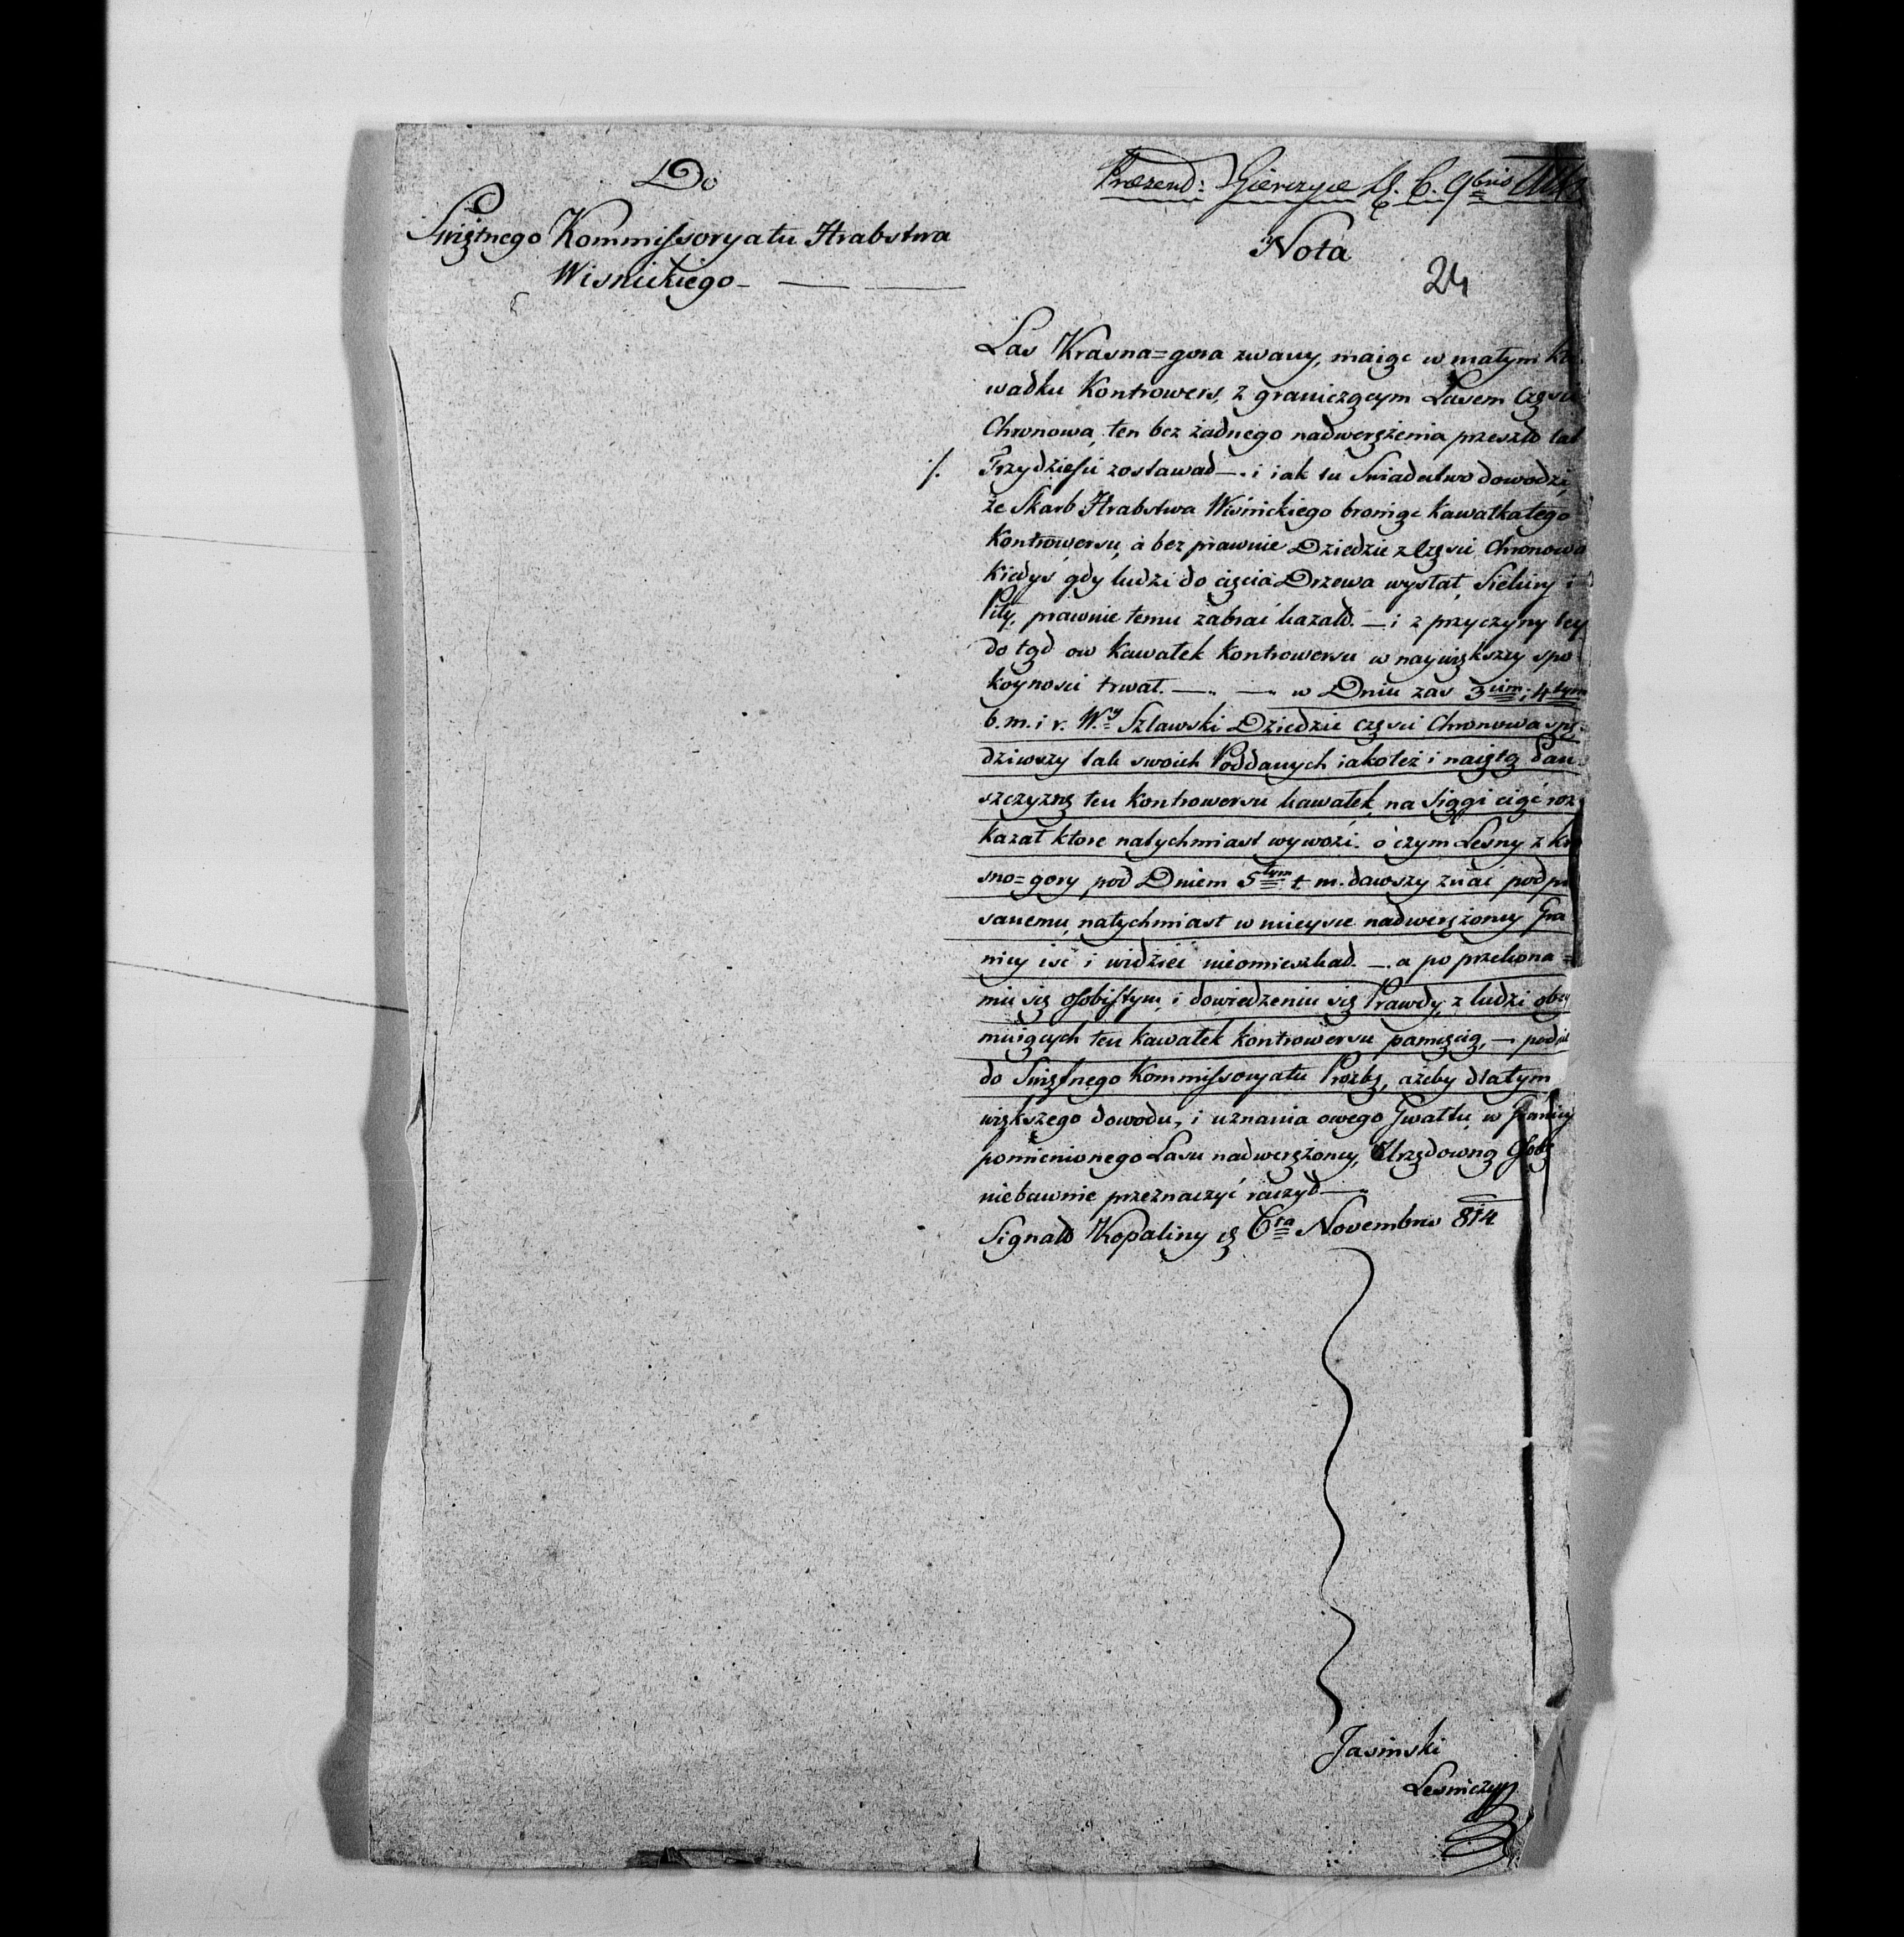 Do
Swiętnego Kommissoryatu Hrabstwa
Wisnickiego
Præzend: Gierczyce d. 6. 9bris
Nota
24
Las Krasna=gora zwany, maiąc w małym Ka
wadku Kontrowers, z graniczącym Lasem Częsci
Chronowa, ten bez żadnego nadwerężenia przeszło lat
./. Trzydziesci zostawad —. i iak tu Swiadectwo dowodzi,
że Skarb Hrabstwa Wisnickiego broniąc Kawatka tego
Kontrowersu, á bez prawnie Dziedzic z Częsci Chronowa
kiedys gdy ludzi do cięcia Drzewa wysłat, Siekiry i
Piły, prawnie temu zabrać kazałd. — i z przyczyny tey
do tąd ow Kawatek Kontrowersu w naywiększy spo
koynosci trwat. —. —. w Dniu zas 3cim i 4tym
b. m. i r. Wy Szlawski Dziedzic częsci Chronowa spę=
dziwszy tak swoich Poddanych iakoteż i naiętą Pan
szczyznę ten Kontrowersu kawatek, na Siągi ciąć roz
kazat ktore natychmiast wywozi. o czym Lesny z Kra
sno=gory pod Dniem 5tym t. m. dawszy znać podpi
sanemu, natychmiast w mieysce nadwerężony Gra
nicy isć i widzieć nieomieszkad. —. a po przekona=
niu się osobistym, i dowiedzeniu się Prawdy, z ludzi obey
muiących ten kawatek kontrowersu pamięcią, —
do Swiętnego Kommissoryatu Prozbę, ażeby dla tym
większego dowodu, i uznania owego Gwattu, w Granicy
pomienionego Lasu nadwerężony, Urzędowną Osobę
niebawnie przeznaczyć raczyd —.
Signatd Kopaliny d. 6ta Novembris 814
Jasinski
Lesniczy